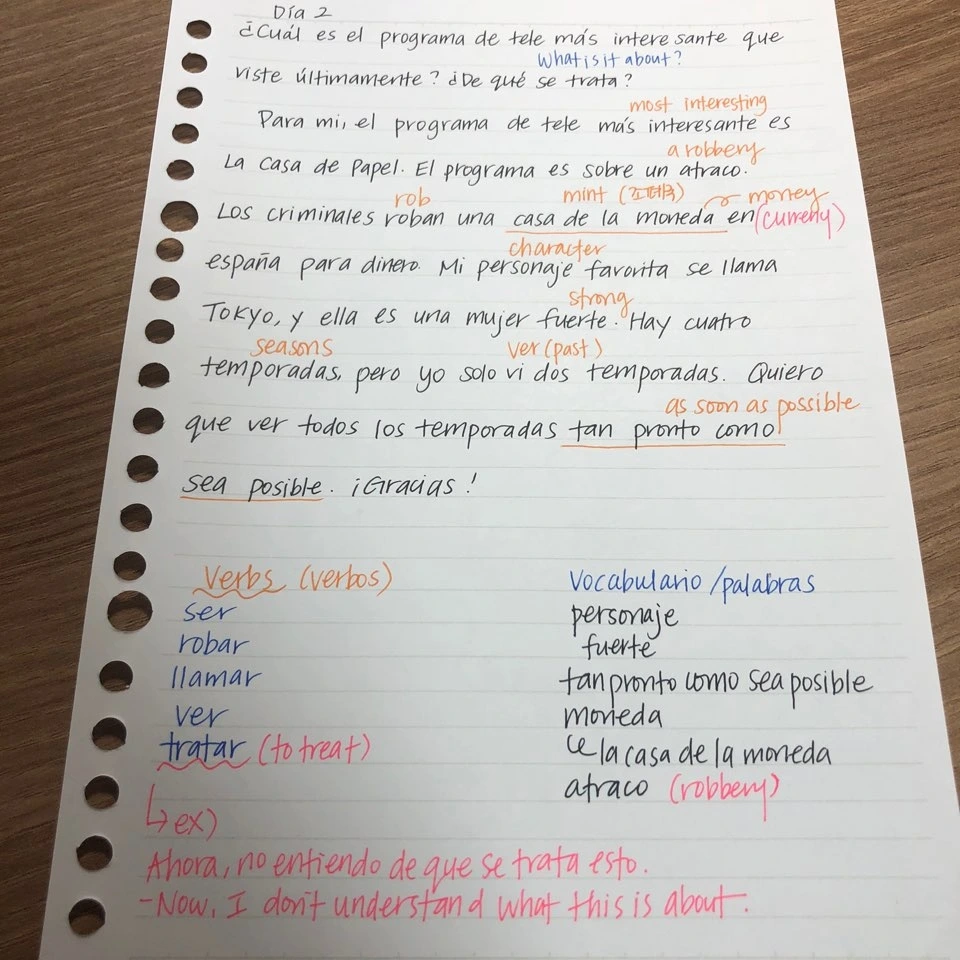 Día 2
¿Cuál es el programa de tele más interesante que
What is it about?
viste últimamente? ¿De qué se trata?
most interesting
Para mi, el programa de tele más interesante es
a robbery
La Casa de Papel. El programa es sobre un atraco.
rob mint (조폐국) money
Los criminales roban una casa de la moneda en (currency)
character
españa para dinero. Mi personaje favorita se llama
strong
Tokyo, y ella es una mujer fuerte. Hay cuatro
seasons ver (past)
temporadas, pero yo solo vi dos temporadas. Quiero
as soon as possible
que ver todos los temporadas tan pronto como
sea posible. ¡Gracias!
Verbs (verbos) Vocabulario/palabras
ser personaje
robar fuerte
llamar tan pronto como sea posible
ver moneda
tratar (to treat) la casa de la moneda
atraco (robbery)
ex)
Ahora, no entiendo de que se trata esto.
-Now, I don't understand what this is about.